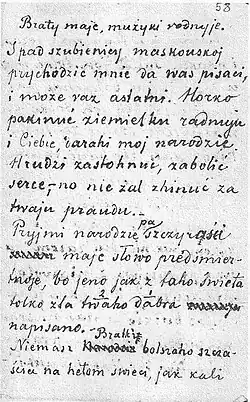 53
Braty maje, mużyki rodnyje.
Z pad szubienicy maskouskoj
prychodzić mnie da was pisaci,
i może raz astatni. Horko
pakinuć ziemielku radnuju
i Ciebie, darahi moj narodzie.
Hrudzi zastohnuć, zabolić
serce, – no nie żal zhinuć za
twaju praudu.
Pryjmi narodzie pa szczyrasti
maje słowo predśmier-
tnoje, bo jeno jak z taho świeta
tolko dla twajho dabra
2 1
napisano.
Bratky
Niemasz bolszaho szcza-
ścia na hetom świeci, jak kali